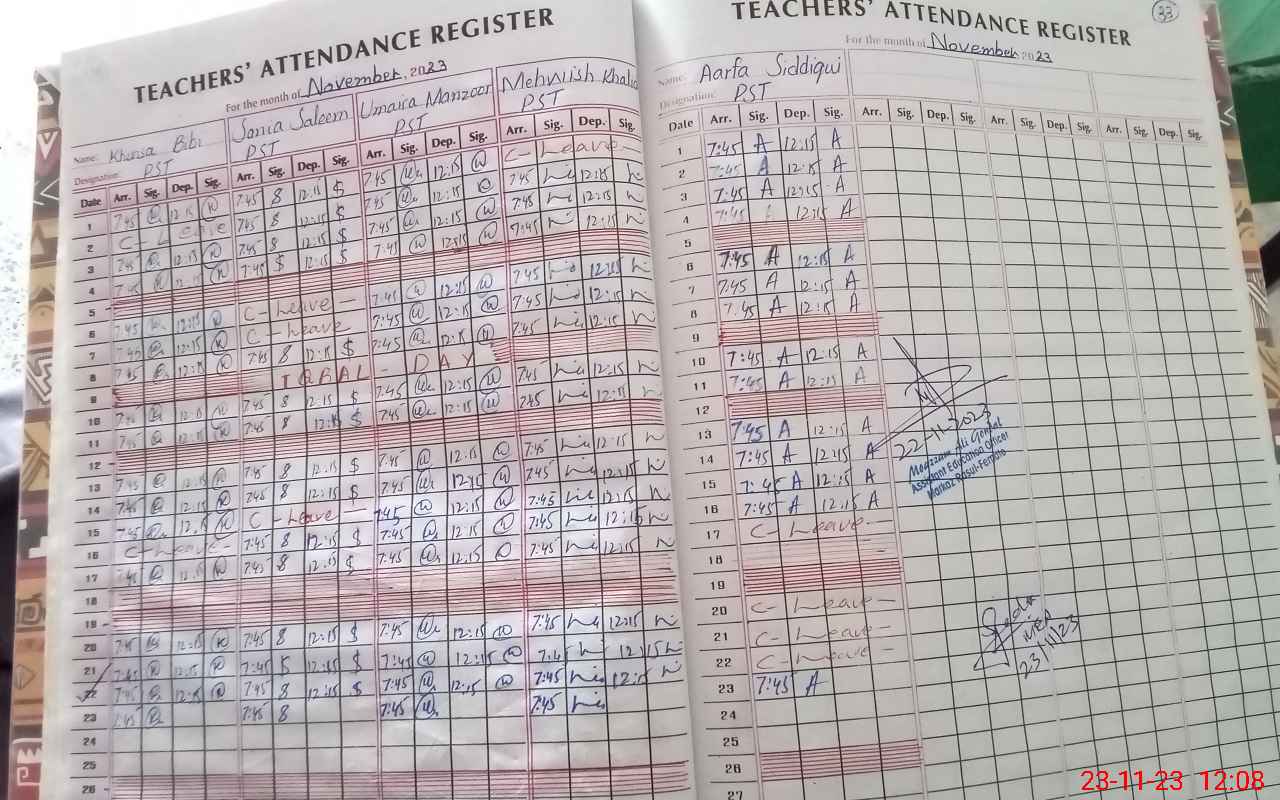 TEACHERS' ATTENDANCE REGISTER
For the month of November, 2023
Name: Khinsa Bibi Sonia Saleem Umaira Manzoor Mehwish Khalid
Designation: PST PST PST PST
Date Arr. Sig. Dep. Sig. Arr. Sig. Dep. Sig. Arr. Sig. Dep. Sig. Arr. Sig. Dep. Sig.
1 7:45 12:15 7:45 8 12:15 $ 7:45 12:15 C-Leave
2 C-Leave 7:45 8 12:15 $ 7:45 12:15 7:45 12:15
3 7:45 12:15 7:45 8 12:15 $ 7:45 12:15 7:45 12:15
4 7:45 12:15 7:45 $ 12:15 $ 7:45 12:15 7:45 12:15
5
6 7:45 12:15 C-Leave- 7:45 12:15 7:45 12:15
7 7:45 12:15 C-Leave 7:45 12:15 7:45 12:15
8 7:45 12:15 7:45 8 12:15 $ 7:45 12:15 7:45 12:15
9 IQBAL-DAY
10 7:45 12:15 7:45 8 12:15 $ 7:45 12:15 7:45 12:15
11 7:45 12:15 7:45 8 12:15 $ 7:45 12:15 7:45 12:15
12
13 7:45 12:15 7:45 8 12:15 $ 7:45 12:15 7:45 12:15
14 7:45 12:15 7:45 8 12:15 $ 7:45 12:15 7:45 12:15
15 7:45 12:15 C-Leave- 7:45 12:15 7:45 12:15
16 C-Leave- 7:45 8 12:15 $ 7:45 12:15 7:45 12:15
17 7:45 12:15 7:45 8 12:15 $ 7:45 12:15 7:45 12:15
18
19
20 7:45 12:15 7:45 8 12:15 $ 7:45 12:15 7:45 12:15
21 7:45 12:15 7:45 12:15 $ 7:45 12:15 7:45 12:15
22 7:45 12:15 7:45 8 12:15 $ 7:45 12:15 7:45 12:15
23 7:45 7:45 8 7:45 7:45
24
25
26
33
TEACHERS' ATTENDANCE REGISTER
For the month of November 2023
Name: Aarfa Siddiqui
Designation: PST
Date Arr. Sig. Dep. Sig. Arr. Sig. Dep. Sig. Arr. Sig. Dep. Sig. Arr. Sig. Dep. Sig.
1 7:45 A 12:15 A
2 7:45 A 12:15 A
3 7:45 A 12:15 A
4 7:45 12:15 A
5
6 7:45 A 12:15 A
7 7:45 A 12:15 A
8 7:45 A 12:15 A
9
10 7:45 A 12:15 A
11 7:45 A 12:15 A
12
13 7:45 A 12:15 A
14 7:45 A 12:15 A
15 7:45 A 12:15 A
16 7:45 A 12:15 A
17 C-Leave-
18
19
20 C-Leave-
21 C-Leave-
22 C-Leave-
23 7:45 A
24
25
26
27
22-11-2023
Assistant Education Officer
Markaz Rasul-Female
23/11/23
23-11-23 12:08